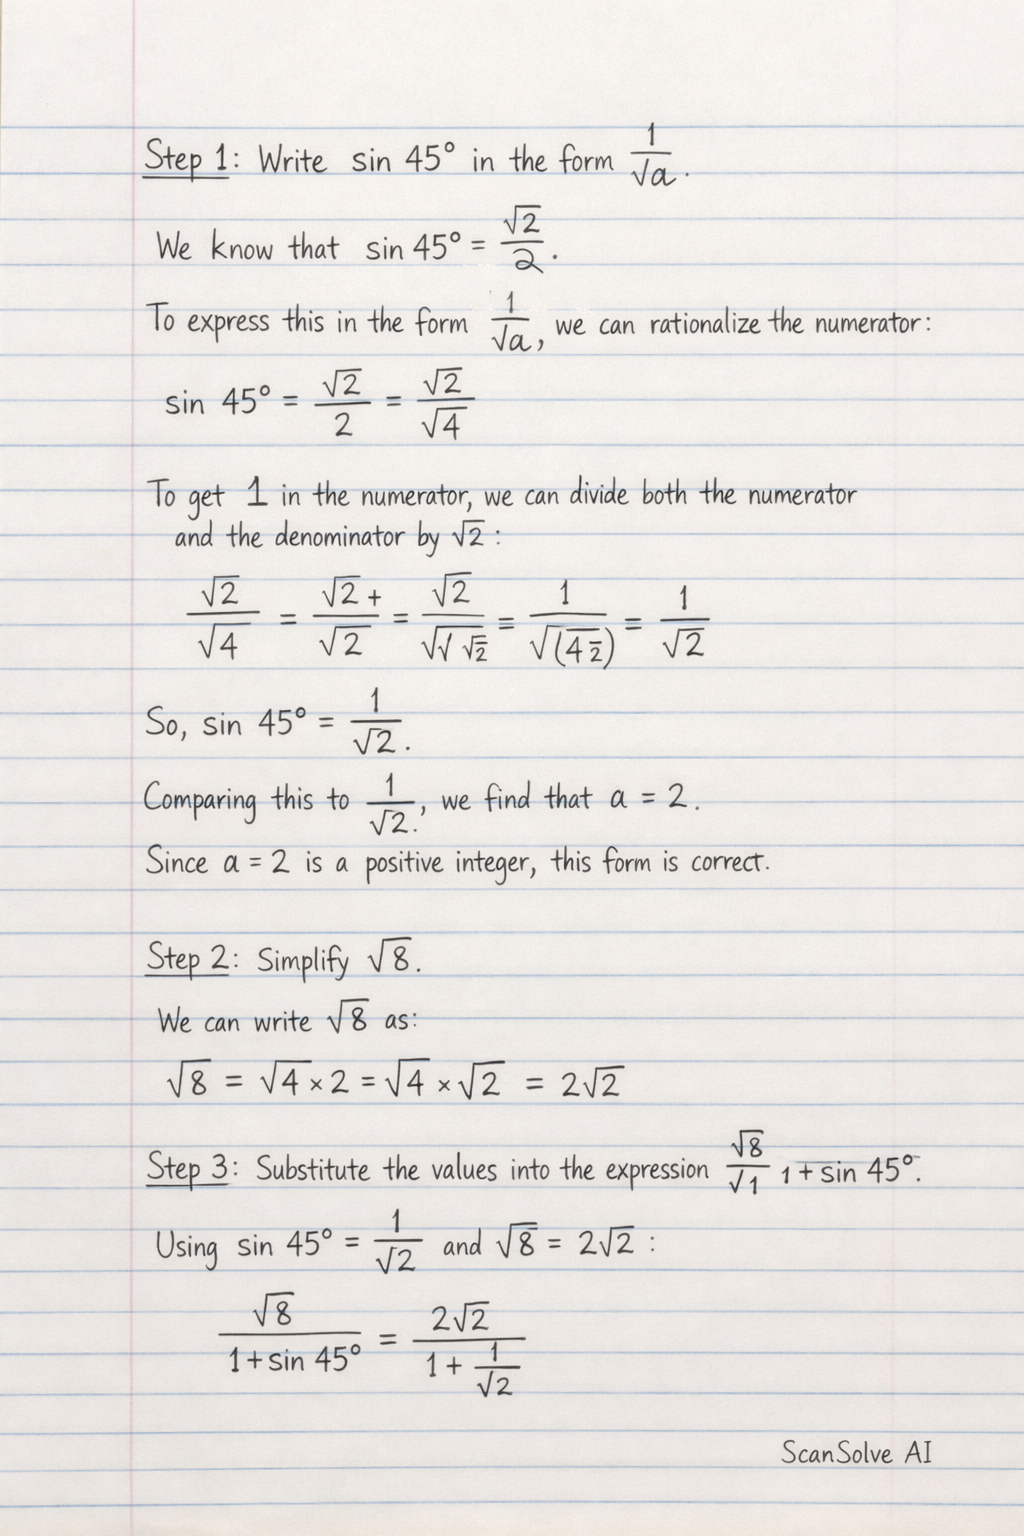 Step 1: Write sin 45° in the form 1/√a.
We know that sin 45° = √2/2.
To express this in the form 1/√a, we can rationalize the numerator:
sin 45° = √2/2 = √2/√4
To get 1 in the numerator, we can divide both the numerator
and the denominator by √2 :
√2/√4 = √2+/√2 = √2/√√ √2 = 1/√(4 2) = 1/√2
So, sin 45° = 1/√2.
Comparing this to 1/√2., we find that a = 2.
Since a = 2 is a positive integer, this form is correct.
Step 2: Simplify √8.
We can write √8 as:
√8 = √4 × 2 = √4 × √2 = 2√2
Step 3: Substitute the values into the expression √8/√1 1 + sin 45°.
Using sin 45° = 1/√2 and √8 = 2√2 :
√8/(1 + sin 45°) = 2√2/(1 + 1/√2)
ScanSolve AI